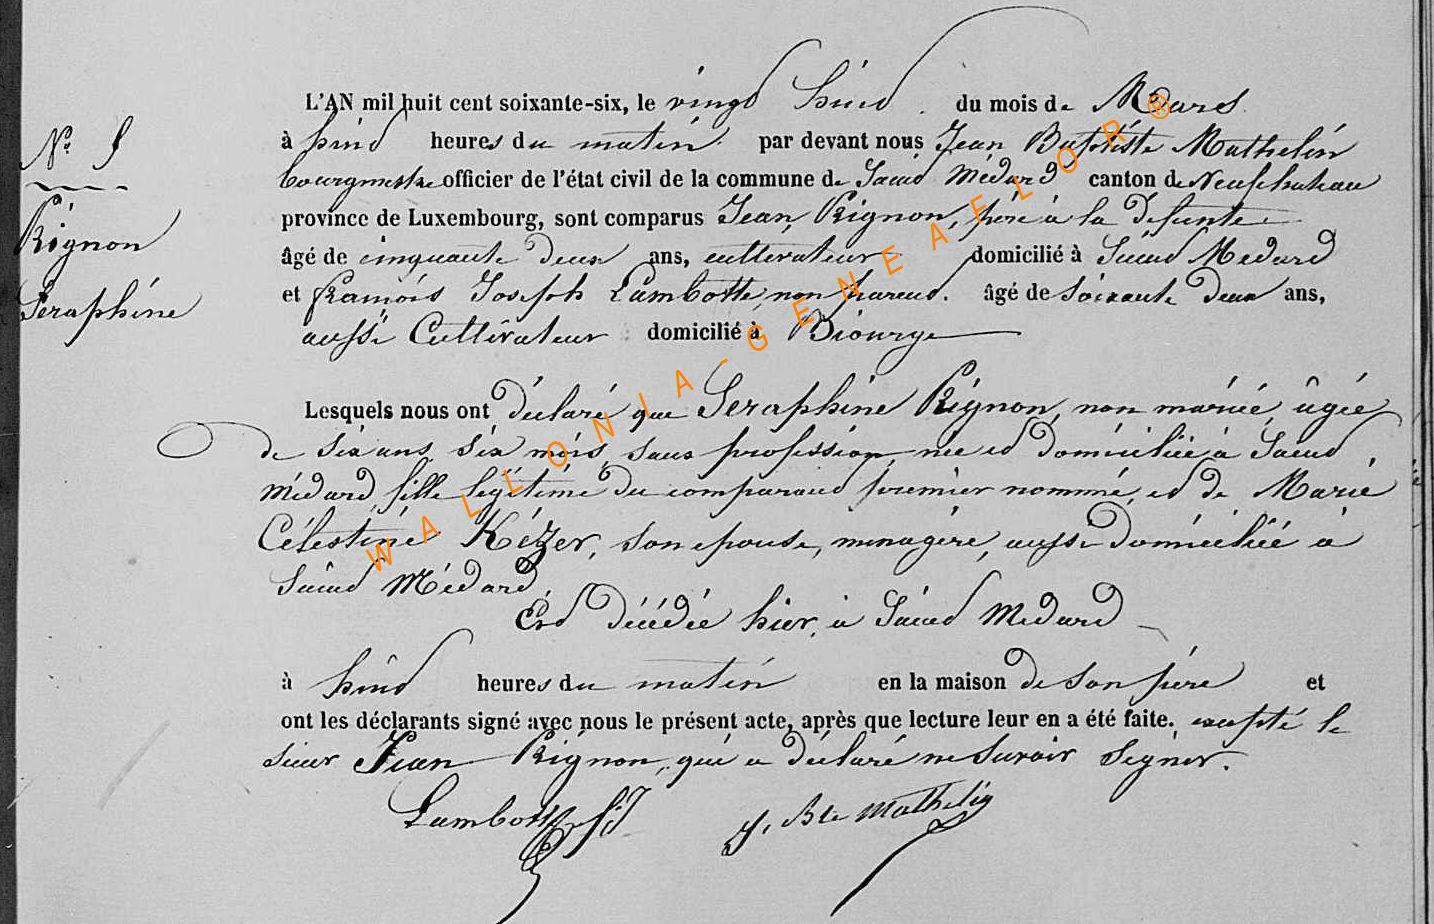 L'AN mil huit cent soixante-six, le vingt huit du mois de Mars
N° 5
à huit heures du matin par devant nous Jean Baptiste Mathelin
bourgmestre officier de l'état civil de la commune de Saint Médard canton de Neufchateau
Rignon
Seraphine
province de Luxembourg, sont comparus Jean Rignon, père à la defunte
âgé de cinquante deux ans, cultivateur domicilié à Saint Medard
et François Joseph Lambotte non parent. âgé de soixante deux ans,
aussi Cultivateur domicilié à Biourge
Lesquels nous ont déclaré que Seraphine Rignon, non mariée âgée
de six ans six mois, sans profession, née et domiciliée à Saint
Médard fille légitime du comparant premier nommé, et de Marie
Célestine Kézer, son epouse, menagère, aussi domiciliée à
Saint Médard,
Est décédée hier, à Saint Medard
à huit heures du matin en la maison de son père et
ont les déclarants signé avec nous le présent acte, après que lecture leur en a été faite. excepté le
sieur Jean Rignon, qui a déclaré ne savoir signer.
Lambotte f.j J. Bte Mathelin
WALLONIA-GENEAFLOR®